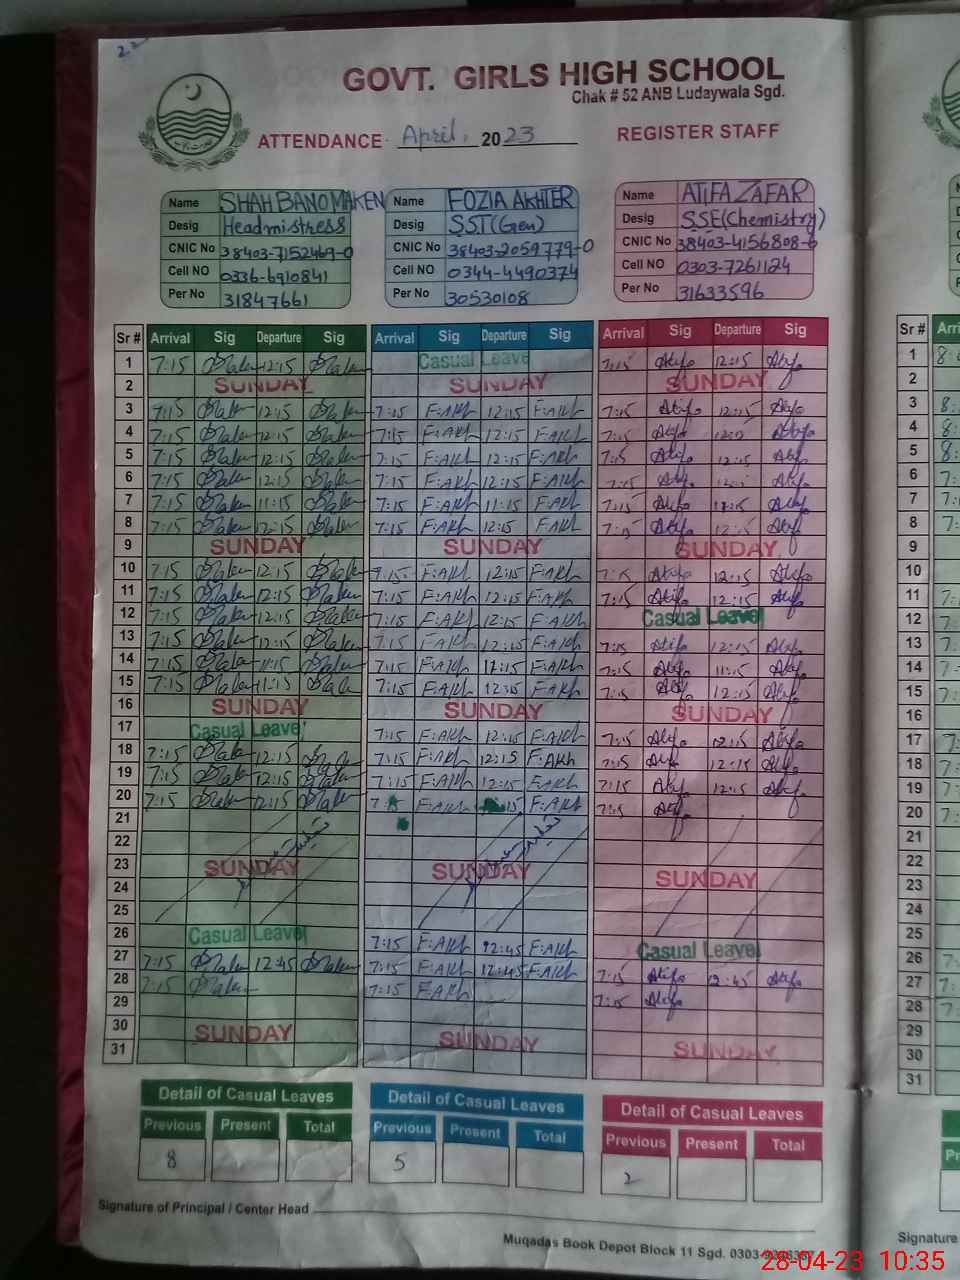 GOVT. GIRLS HIGH SCHOOL
Chak # 52 ANB Ludaywala Sgd.
ATTENDANCE April, 2023 REGISTER STAFF
Name SHAH BANO MAKEN Name FOZIA AKHTER Name ATIFA ZAFAR
Desig Headmistress Desig SST(Gen) Desig SSE(Chemistry)
CNIC No 38403-7152469-0 CNIC No 38403-2059779-0 CNIC No 38403-4156808-6
Cell NO 0336-6910841 Cell NO 0344-4490374 Cell NO 0303-7261124
Per No 31847661 Per No 30530108 Per No 31633596
Sr # Arrival Sig Departure Sig Arrival Sig Departure Sig Arrival Sig Departure Sig Sr #
1 7:15 12:15 Casual Leave 7:15 Atifa 12:15 Atifa 1
2 SUNDAY SUNDAY SUNDAY 2
3 7:15 12:15 7:15 F:AKH 12:15 F:AKH 7:15 Atifa 12:15 Atifa 3
4 7:15 12:15 7:15 F:AKH 12:15 F:AKH 7:15 Atifa Atifa 4
5 7:15 12:15 7:15 F:AKH 12:15 F:AKH 7:15 Atifa 12:15 Atifa 5
6 7:15 12:15 7:15 F:AKH 12:15 F:AKH 7:15 Atifa Atifa 6
7 7:15 11:15 7:15 F:AKH 11:15 F:AKH 7:15 Atifa 11:15 Atifa 7
8 7:15 12:15 7:15 F:AKH 12:15 F:AKH 7:15 Atifa 12:15 Atifa 8
9 SUNDAY SUNDAY SUNDAY 9
10 7:15 12:15 7:15 F:AKH 12:15 F:AKH 7:15 Atifa 12:15 Atifa 10
11 7:15 12:15 7:15 F:AKH 12:15 F:AKH 7:15 Atifa 12:15 Atifa 11
12 7:15 12:15 7:15 F:AKH 12:15 F:AKH Casual Leave 12
13 7:15 12:15 7:15 F:AKH 12:15 F:AKH 7:15 Atifa 12:15 Atifa 13
14 7:15 11:15 7:15 F:AKH 11:15 F:AKH 7:15 Atifa 11:15 Atifa 14
15 7:15 11:15 7:15 F:AKH 12:15 F:AKH 7:15 Atifa 12:15 Atifa 15
16 SUNDAY SUNDAY SUNDAY 16
17 Casual Leave 7:15 F:AKH 12:15 F:AKH 7:15 Atifa 12:15 Atifa 17
18 7:15 12:15 7:15 F:AKH 12:15 F:AKH 7:15 Atifa 12:15 Atifa 18
19 7:15 12:15 7:15 F:AKH 12:15 F:AKH 7:15 Atifa 12:15 Atifa 19
20 7:15 12:15 F:AKH F:AKH 7:15 Atifa 20
21 21
22 22
23 SUNDAY SUNDAY SUNDAY 23
24 24
25 25
26 Casual Leave 7:15 F:AKH 12:45 F:AKH Casual Leave 26
27 7:15 12:45 7:15 F:AKH 12:45 F:AKH 7:15 Atifa 12:45 Atifa 27
28 7:15 7:15 F:AKH 7:15 Atifa 28
29 29
30 SUNDAY SUNDAY SUNDAY 30
31 31
Detail of Casual Leaves Detail of Casual Leaves Detail of Casual Leaves
Previous Present Total Previous Present Total Previous Present Total
8 5 2
Signature of Principal / Center Head Signature
Muqadas Book Depot Block 11 Sgd.
28-04-23 10:35